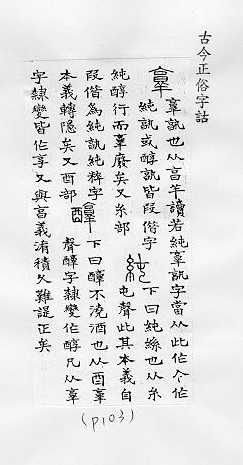 古今正俗字詁
𦎫 𦎫孰也从亯羊讀若純𦎫訊字當从此作今作
純訊或醇訊皆叚借字 純 下曰純絲也从糸
純醇行而𦎫廢矣又糸部 屯聲此其本義自
叚借為純訊純粹字 醇 下曰醇不澆酒也从酉𦎫
本義轉隱矣又酉部 聲醇字隸變作醇凡从𦎫
字隸變皆作享又與亯義淆積久難諟正矣
(P103)